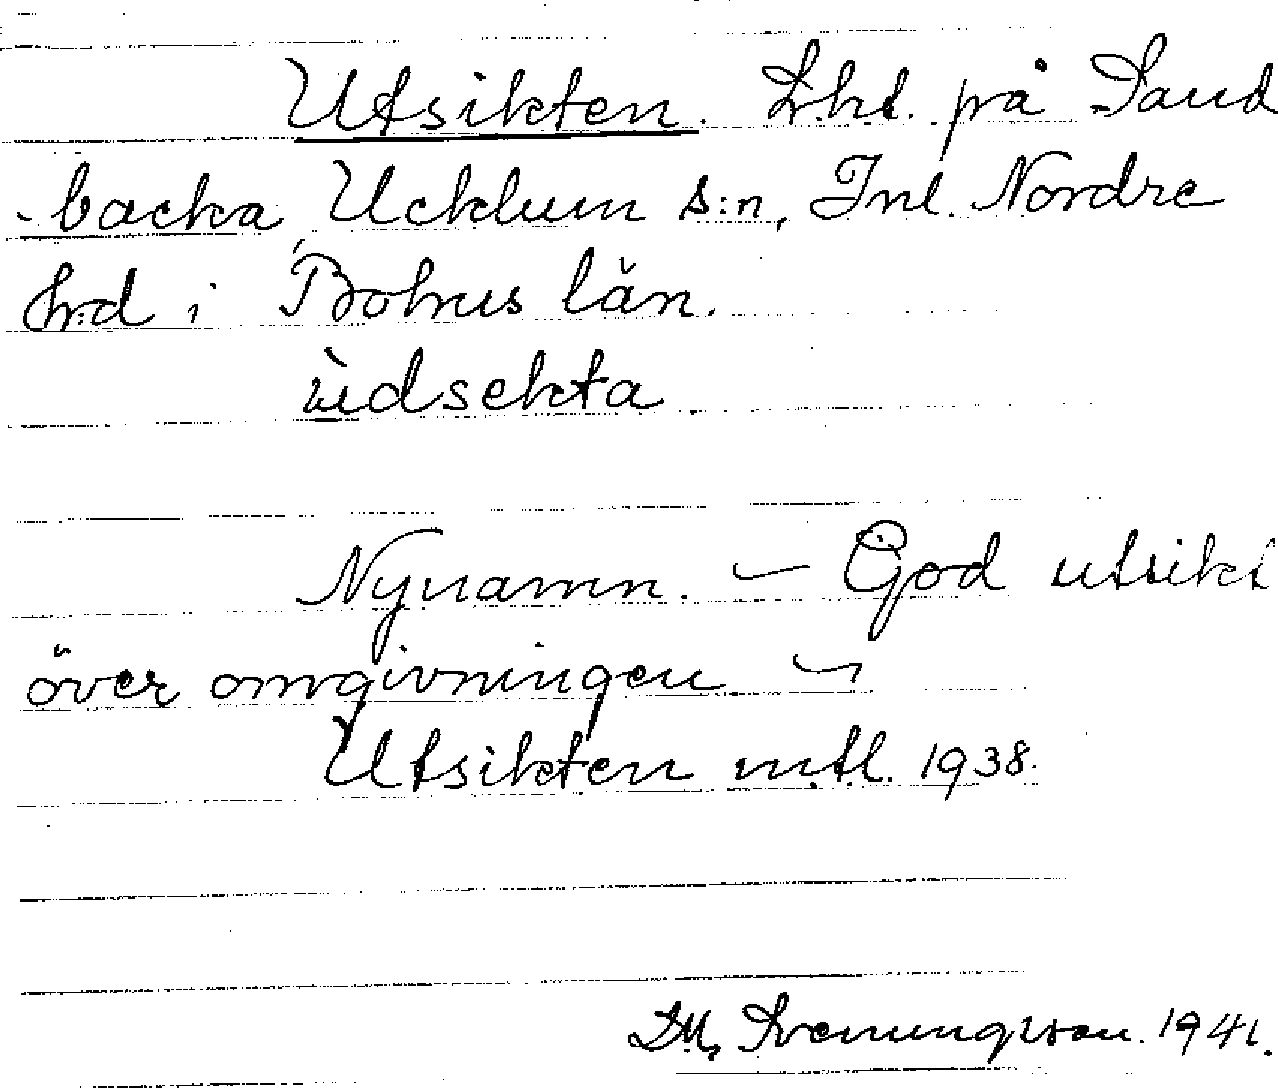 Utsikten. Lht. på Sand
-backa, Ucklum s:n, Inl. Nordre
hrd i Bohus län.
ùdsekta
Nynamn. – God utsikt
över omgivningen –
Utsikten mtl. 1938.
Sveningson. 1941.